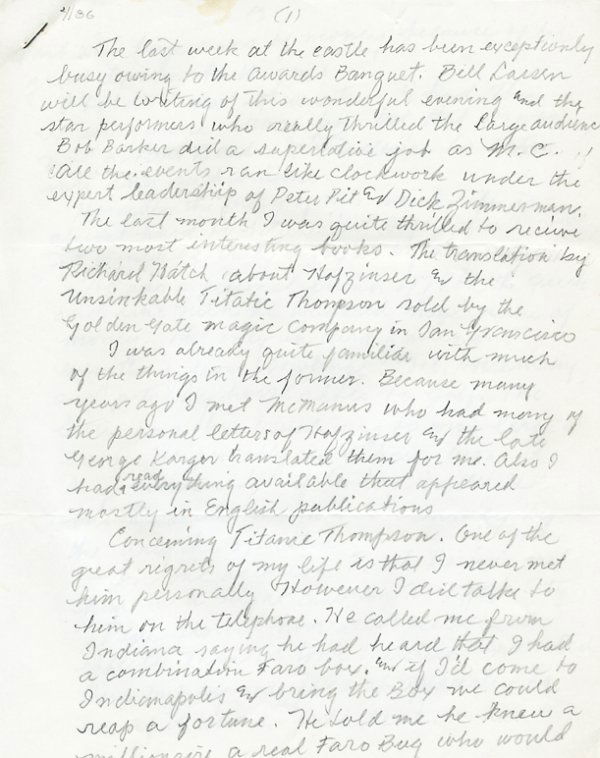 4/86 (1)
The last week at the castle has been exceptionly
busy owing to the awards Banquet. Bill Larsen
will be writing of this wonderful evening and the
star performers who really thrilled the large audience
Bob Barker did a superlative job as M.C.
All the events ran like clockwork under the
expert leadership of Peter Pit and Dick Zimmerman.
The last month I was quite thrilled to recieve
two most interesting books. The translation by
Richard Hatch about Hofzinser and the
Unsinkable Titatic Thompson sold by the
Golden Gate magic Company in San Francisco
I was already quite familiar with much
of the things in the former. Because many
years ago I met McManus who had many of
the personal letters of Hofzinser and the late
George Karger translated them for me. Also I
had read everything available that appeared
mostly in English publications
Concerning Titanic Thompson. One of the
great regrets of my life is that I never met
him personally However I did talk to
him on the telephone. He called me from
Indiana saying he had heard that I had
a combination Faro box, and if I'd come to
Indianapolis and bring the Box we could
reap a fortune. He told me he knew a
millionaire a real Faro Bug who would